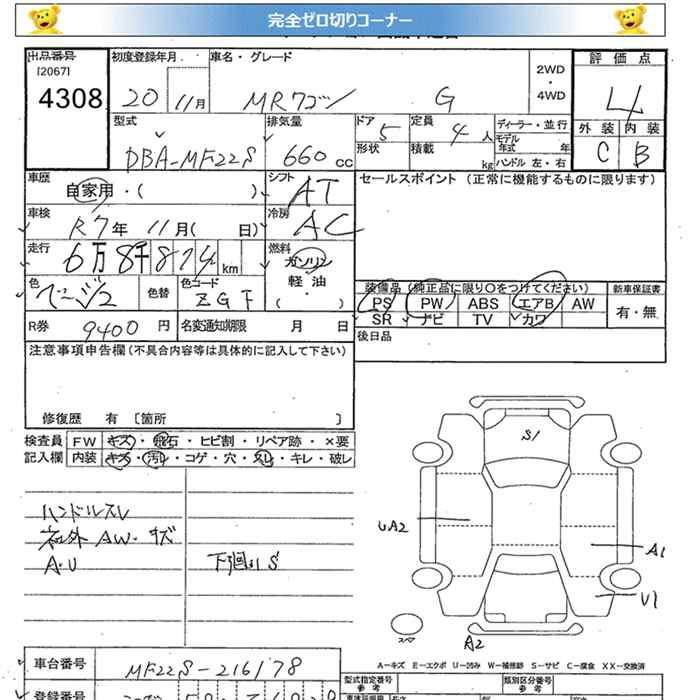 完全ゼロ切りコーナー
出品番号 初度登録年月 車名・グレード 2WD・4WD 評価点
[2067]
4308 20 11月 MRワゴン G 4
型式 排気量 ドア 定員 ディーラー・並行 外装 内装
DBA-MF22S 660cc 5 4人 モデル年式 年 C B
形状 積載 kg ハンドル 左・右
車歴 シフト セールスポイント (正常に機能するものに限ります)
自家用・( ) AT
車検 冷房
R7年 11月( 日) AC
走行 燃料
6万8千874km ガソリン
軽油
・( )
色 色替 色コード 装備品 (純正品に限り○をつけてください) 新車保証書
ベージュ2 ZGF PS PW ABS エアB AW 有・無
SR ナビ TV カワ
R券 9400円 名変通知期限 月 日 後日品
注意事項申告欄 (不具合内容等は具体的に記入して下さい)
修復歴 有 〔箇所 〕
検査員 FW キズ・飛石・ヒビ割・リペア跡・×要
記入欄 内装 キズ・汚レ・コゲ・穴・スレ・キレ・破レ
ハンドルスレ
内外 AW・キズ
A・U 下回りS
S1
UA2
A1
V1
スペア
A2
A－キズ E－エクボ U－凹み W－補修跡 S－サビ C－腐食 XX－交換済
車台番号 MF22S-216178 型式指定番号 参考 類別区分番号 参考
登録番号